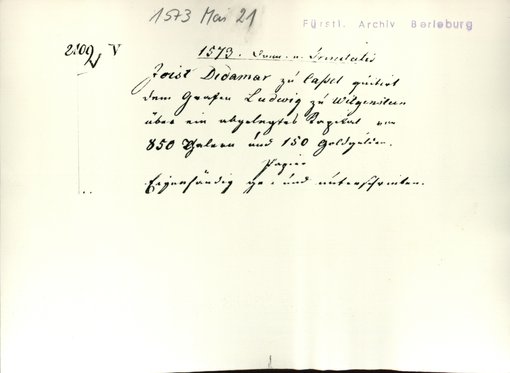 1573 Mai 21
Fürstl. Archiv Berleburg
V
1573. Dom. n. Trinitatis
Joist Dedamar zu Caßel quitirt
dem Grafen Ludwig zu Witgenstein
über ein abgelegtes Kapital von
850 Thalern und 150 Goldgulden.
Papier
Eigenhändig ge- und unterschrieben.